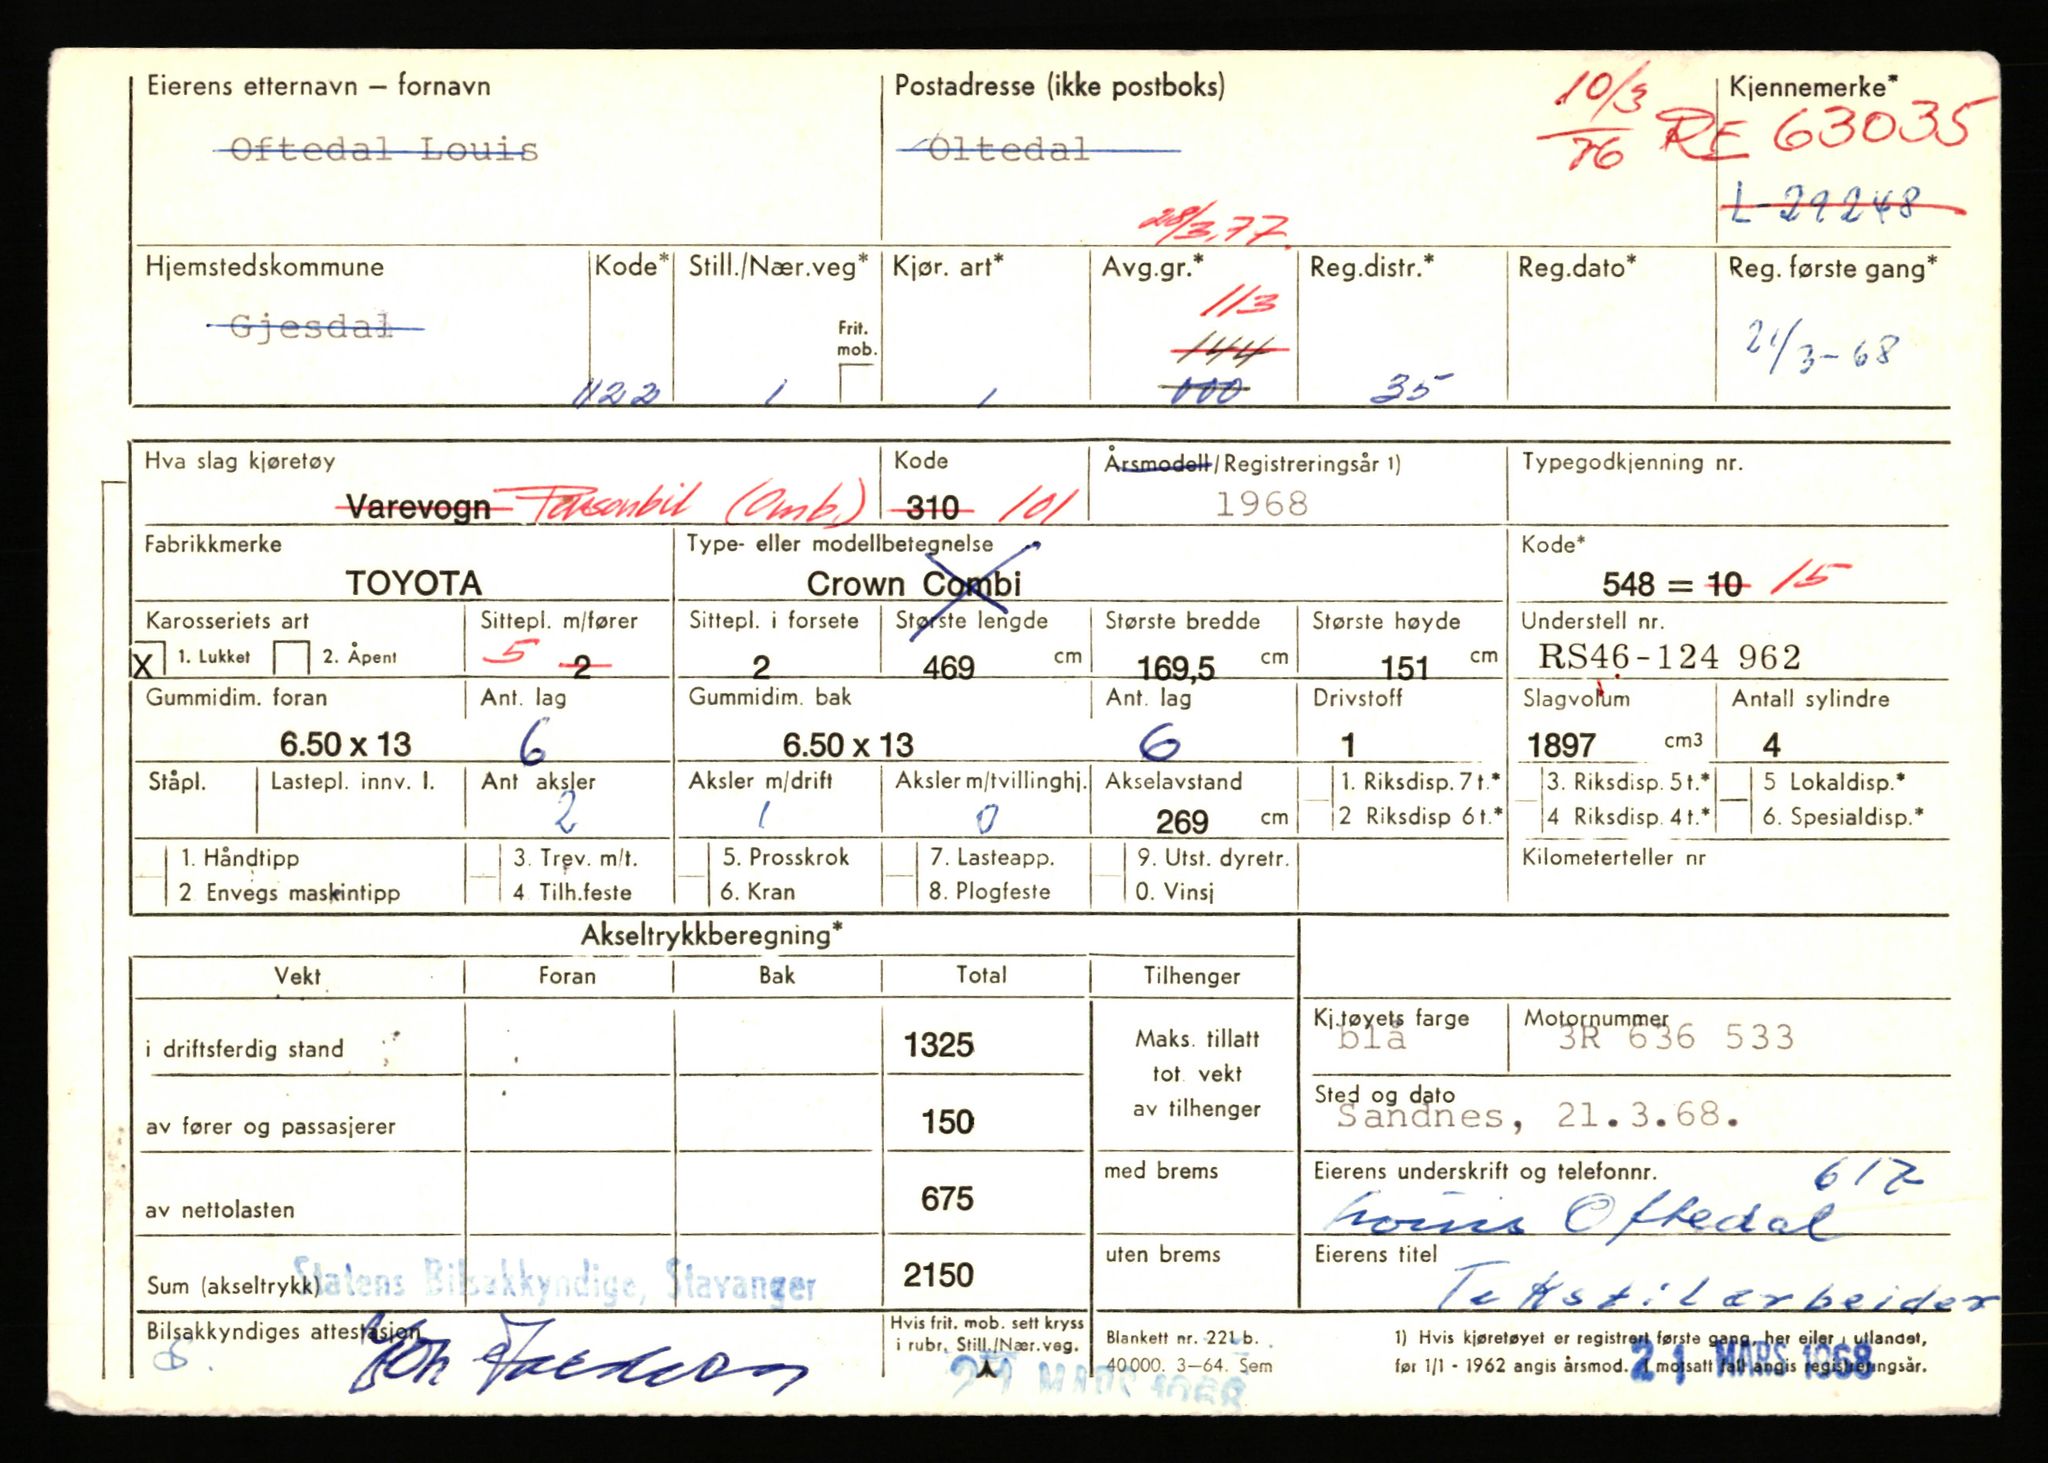 Eierens etternavn – fornavn
Postadresse (ikke postboks)
10/3
76
Kjennemerke*
RE 63035
Oftedal Louis
Oltedal
L-29248
28/3.77.
Hjemstedskommune
Kode*
Still./Nær.veg*
Kjør. art*
Avg.gr.*
Reg.distr.*
Reg.dato*
Reg. første gang*
113
Gjesdal
Frit.
mob.
144
21/3-68
1122
1
1
000
35
Hva slag kjøretøy
Kode
Årsmodell/Registreringsår 1)
Typegodkjenning nr.
Varevogn Personbil (Omb.)
310 101
1968
Fabrikkmerke
Type- eller modellbetegnelse
Kode*
TOYOTA
Crown Combi
548 = 10 15
Karosseriets art
Sittepl. m/fører
Sittepl. i forsete
Største lengde
Største bredde
Største høyde
Understell nr.
X 1. Lukket 2. Åpent
5 2
2
469 cm
169,5 cm
151 cm
RS46-124 962
Gummidim. foran
Ant. lag
Gummidim. bak
Ant. lag
Drivstoff
Slagvolum
Antall sylindre
6.50 x 13
6
6.50 x 13
6
1
1897 cm3
4
Ståpl.
Lastepl. innv. l.
Ant aksler
Aksler m/drift
Aksler m/tvillinghj.
Akselavstand
1. Riksdisp. 7 t.*
3. Riksdisp. 5 t.*
5 Lokaldisp.*
2
1
0
269 cm
2 Riksdisp 6 t.*
4 Riksdisp. 4 t.*
6. Spesialdisp.*
1. Håndtipp
3. Trev. m/t.
5. Prosskrok
7. Lasteapp.
9. Utst. dyretr.
Kilometerteller nr
2 Envegs maskintipp
4 Tilh.feste
6. Kran
8. Plogfeste
0. Vinsj
Akseltrykkberegning*
Vekt
Foran
Bak
Total
Tilhenger
i driftsferdig stand
1325
Maks. tillatt
tot. vekt
av tilhenger
Kj.tøyets farge
Motornummer
blå
3R 636 533
av fører og passasjerer
150
Sted og dato
Sandnes, 21.3.68.
av nettolasten
675
med brems
Eierens underskrift og telefonnr.
617
Louis Oftedal
Sum (akseltrykk)
Statens Bilsakkyndige, Stavanger
2150
uten brems
Eierens titel
Tekstilarbeider
Bilsakkyndiges attestasjon
Hvis frit. mob. sett kryss
i rubr. Still./Nær.veg.
Blankett nr. 221 b.
40000. 3–64. Sem
1) Hvis kjøretøyet er registrert første gang, her eller i utlandet,
før 1/1 - 1962 angis årsmod. I motsatt fall angis registreringsår.
21 MARS 1968
21 MARS 1968